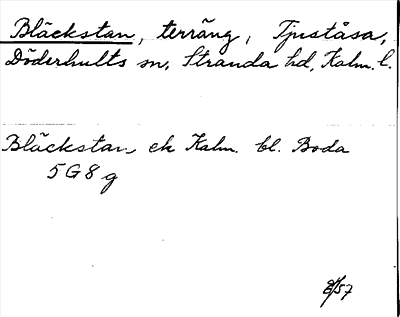 Bläckstan, terräng, Tjuståsa,
Döderhults sn, Stranda hd, Kalm. l.
Bläckstan ek Kalm. bl. Boda
5G8g